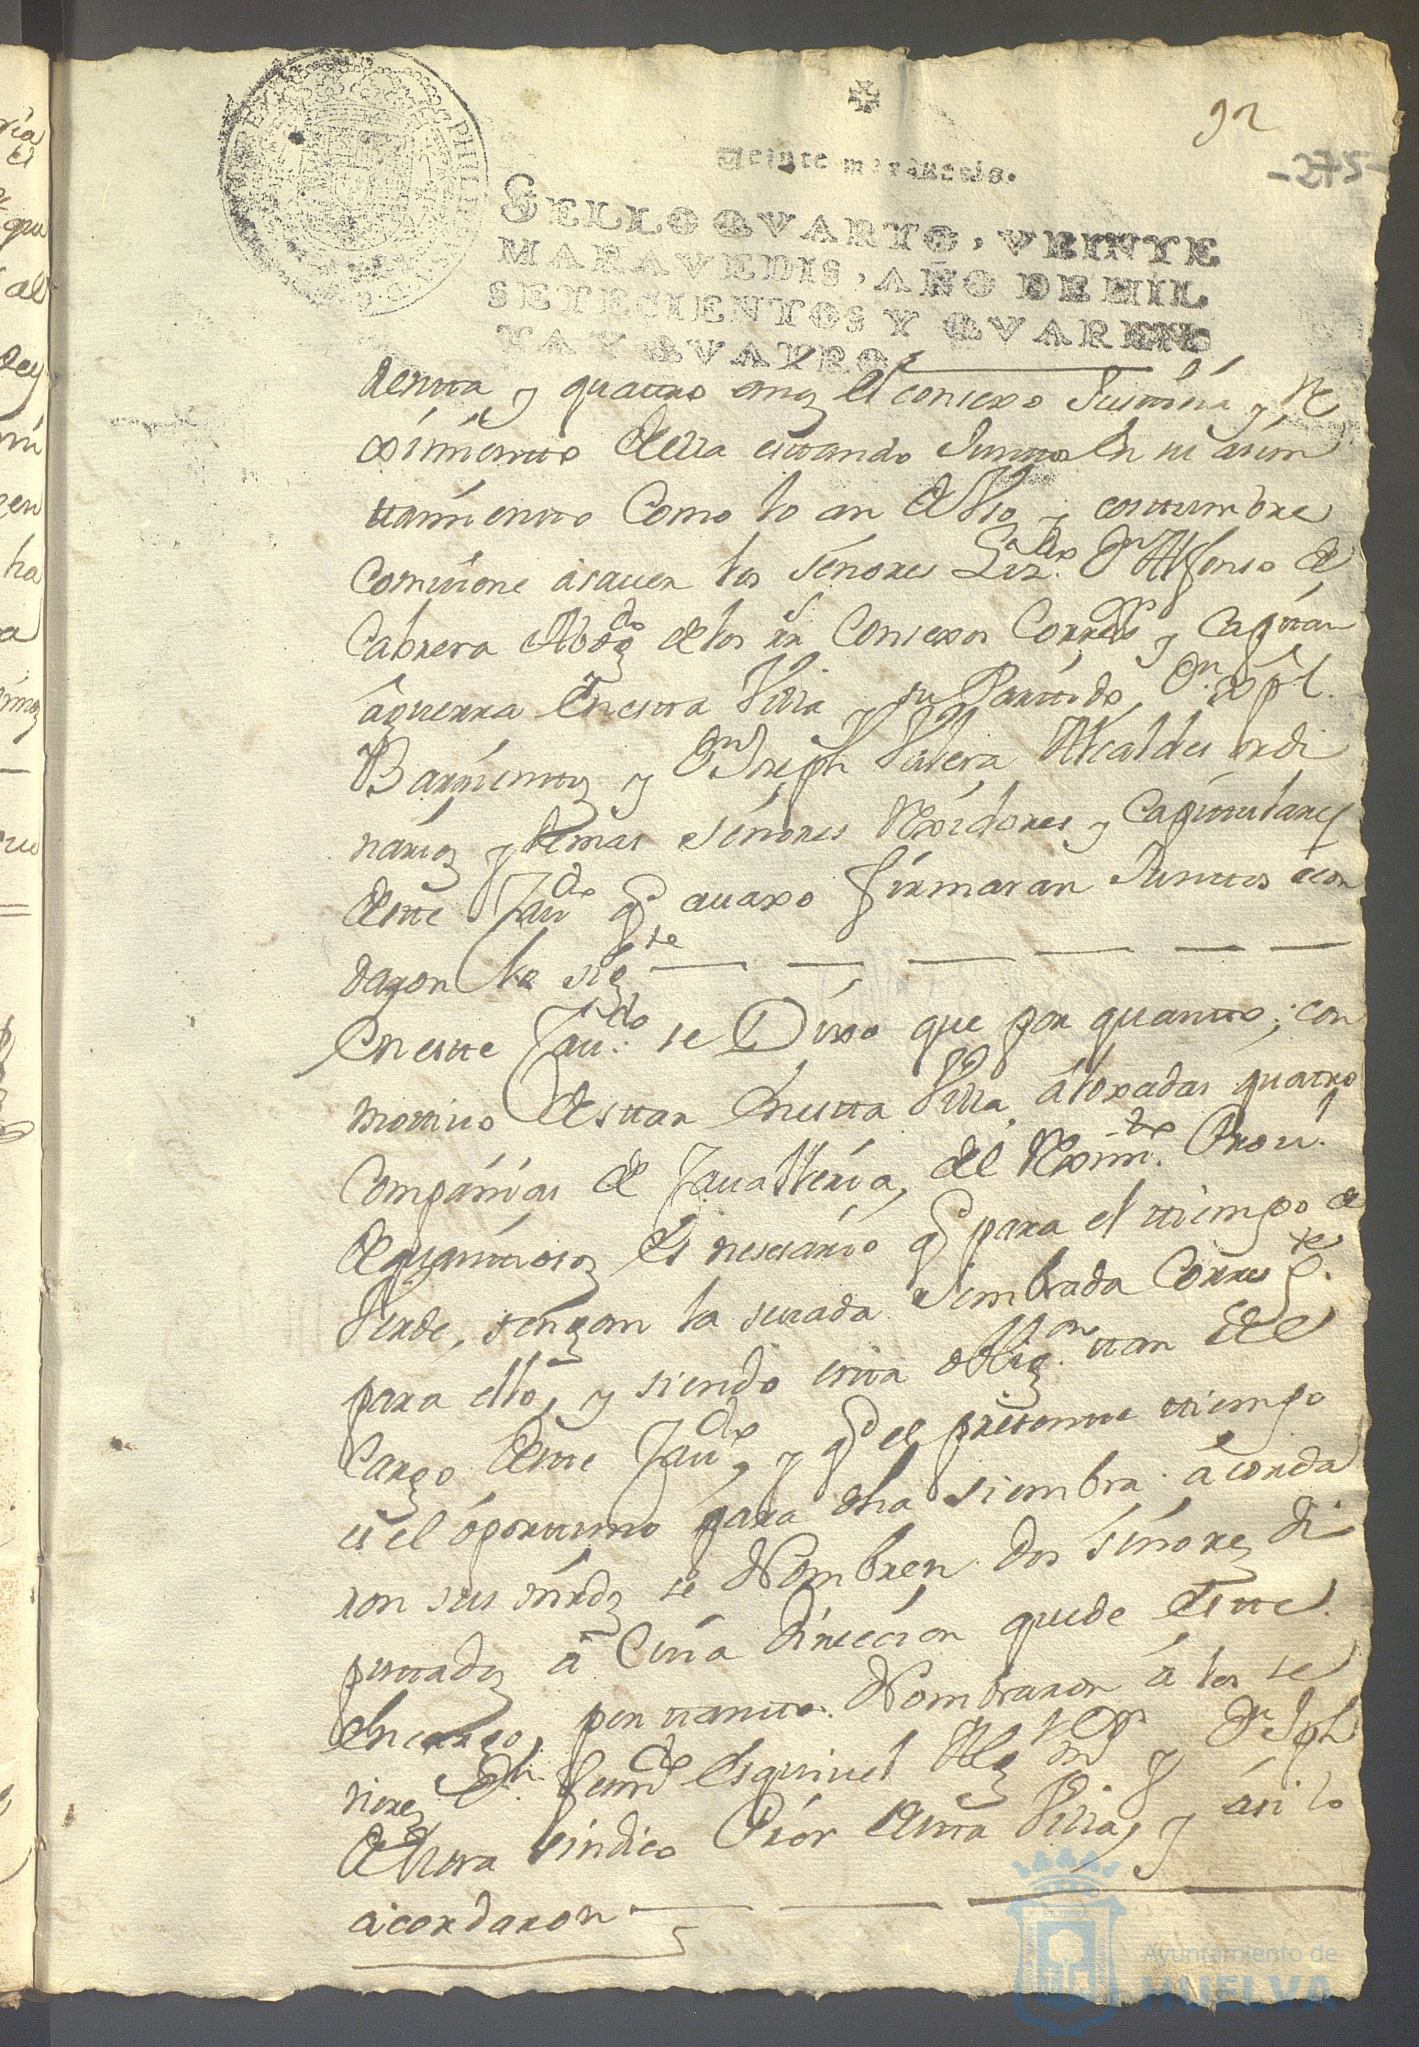 92
-275-
Veinte maravedis.
SELLO QVARTO, VEINTE
MARAVEDIS, AÑO DE MIL
SETECIENTOS Y QVAREN
TA Y QVATRO
renta y quatro años el consexo Justticia y Re
ximientto della esttando Junttos En su aiun
ttamientto Como lo an de Vso y costtumbre
combiene asauer los señores Lizdo. Dn. Alfonso de
Cabrera Abogdo de los rs Consexos Correxor y Capitan
aguerra En estta Villa y su Parttido, Dn. Xpl.
Barrienttos y Dn Joseph Valera Alcaldes ordi
narios y demas señores Rexidores y Capittulares
destte Caudo qe auaxo firmaran Junttos acor
daron lo sigte
En estte Cauo. se Dixo que por quantto; con
mottivo de sttar En estta Villa, aloxadas quatro
Compañias de Cauallería, del Reximto. Prou.
de quanttiosos Es nesesario qe para el ttiempo de
Verde, tengan la seuada sembrada Correspte.
para ello, y siendo estta obligon. ttan del
Cargo destte Caudo, y qe el presentte ttiempo
es el oporttuno para dha siembra acorda
ron sus mrds se Nombren dos señores di
puttados a Cuia direccion quede estte
Encargo, por ttantto. Nombraron a los se
ñores Dn. Ferndo Esquivel Algl mor y Dn Jph
de Mora sindico Pror destta Villa, y asi lo
acordaron
Ayuntamiento de
HUELVA